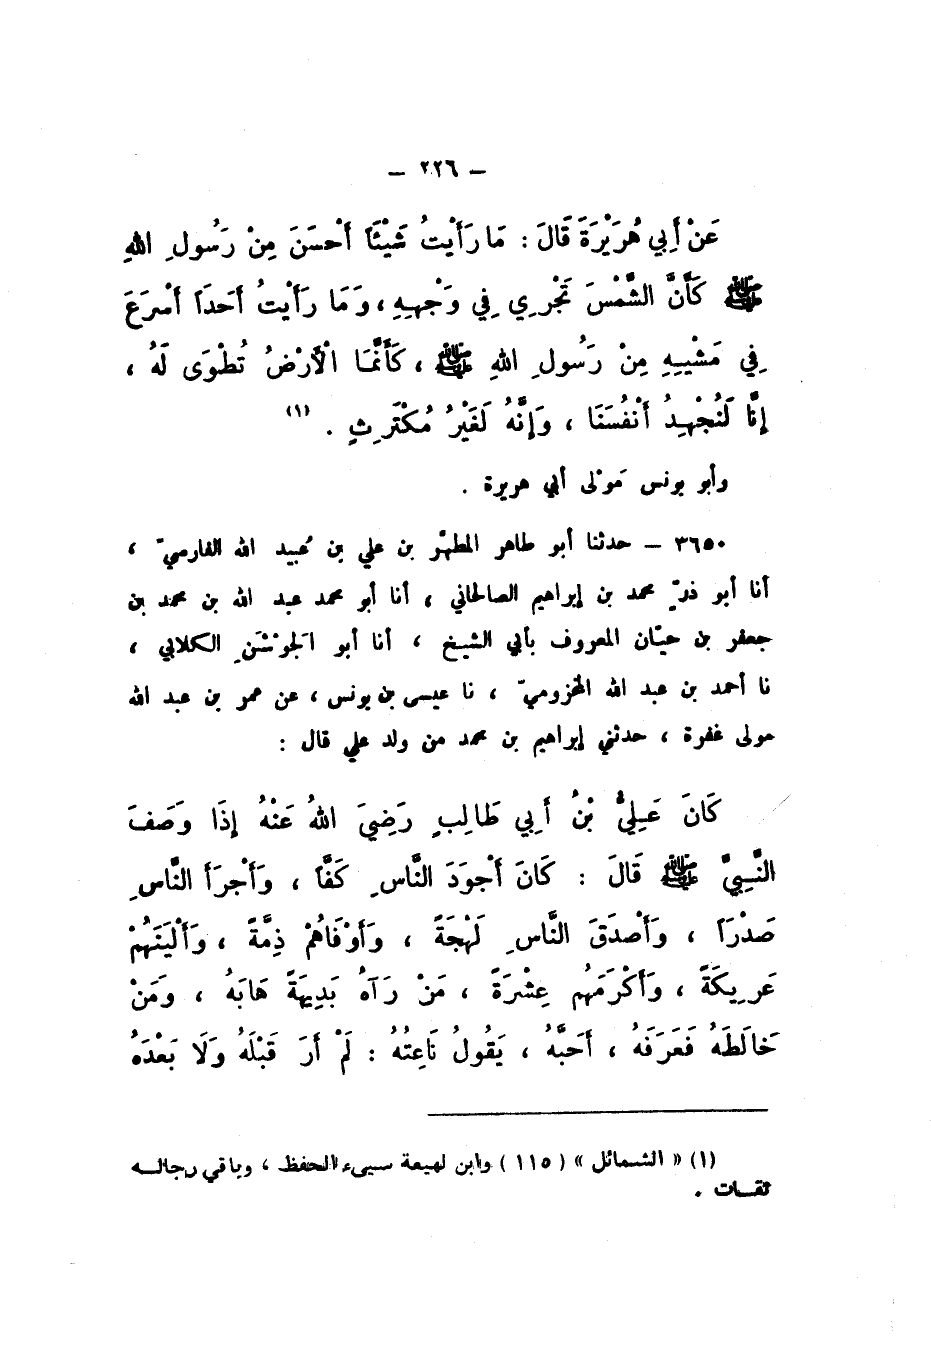 – ٢٢٦ –
عَنْ أَبِي هُرَيْرَةَ قَالَ : مَا رَأَيْتُ شَيْئاً أَحْسَنَ مِنْ رَسُولِ اللهِ
ﷺ كَأَنَّ الشَّمْسَ تَجْرِي فِي وَجْهِهِ ، وَمَا رَأَيْتُ أَحَداً أَسْرَعَ
فِي مَشْيِهِ مِنْ رَسُولِ اللهِ ﷺ ، كَأَنَّمَا الْأَرْضُ تُطْوَى لَهُ ،
إِنَّا لَنُجْهِدُ أَنْفُسَنَا ، وَإِنَّهُ لَغَيْرُ مُكْتَرِثٍ . (١)
وأبو يونس مَوْلى أبي هريرة .
٣٦٥٠ – حدثنا أبو طاهر المطهّر بن علي بن عُبيد الله الفارسيّ ،
أنا أبو ذرّ محمد بن إبراهيم الصالحاني ، أنا أبو محمد عبد الله بن محمد بن
جعفر بن حيّان المعروف بأبي الشيخ ، أنا أبو الجَوْشَنِ الكلابي ،
نا أحمد بن عبد الله المخزوميّ ، نا عيسى بن يونس ، عن عمر بن عبد الله
مولى غفرة ، حدثني إبراهيم بن محمد من ولد علي قال :
كَانَ عَلِيُّ بْنُ أَبِي طَالِبٍ رَضِيَ اللهُ عَنْهُ إِذَا وَصَفَ
النَّبِيَّ ﷺ قَالَ : كَانَ أَجْوَدَ النَّاسِ كَفّاً ، وَأَجْرَأَ النَّاسِ
صَدْراً ، وَأَصْدَقَ النَّاسِ لَهْجَةً ، وَأَوْفَاهُمْ ذِمَّةً ، وَأَلْيَنَهُمْ
عَرِيكَةً ، وَأَكْرَمَهُم عِشْرَةً ، مَنْ رَآهُ بَدِيهَةً هَابَهُ ، وَمَنْ
خَالَطَهُ فَعَرَفَهُ ، أَحَبَّهُ ، يَقُولُ نَاعِتُهُ : لَمْ أَرَ قَبْلَهُ وَلَا بَعْدَهُ
(١) « الشمائل » ( ١١٥ ) وابن لهيعة سيىء الحفظ ، وباقي رجاله
ثقات .